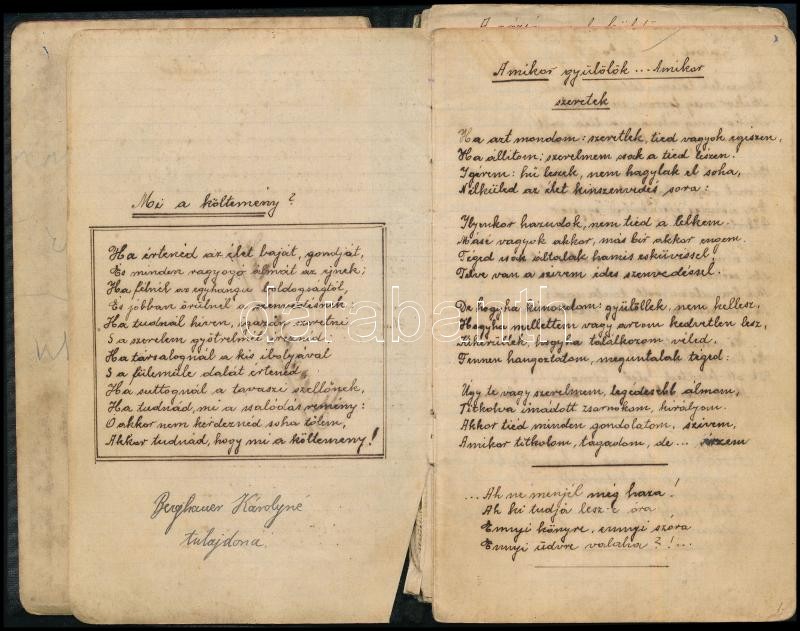 Mi a költemény?
Ha értenéd az élet baját, gondját,
És minden ragyogó álmát az éjnek;
Ha félnél az egyhangu boldogságtól,
És jobban örülnél a szenvedésnek;
Ha tudnál hiven, igazán szeretni
S a szerelem gyötrelmét éreznéd
Ha társalognál a kis ibolyával
S a fülemüle dalát értenéd
Ha suttognál a tavaszi szellőnek,
Ha tudnád, mi a csalódás remény:
O akkor nem kérdeznéd soha tőlem,
Akkor tudnád, hogy mi a költemény!
Berghauer Károlyné
tulajdona.
Amikor gyülölök... Amikor
szeretek
Ha azt mondom: szeretlek, tied vagyok egészen,
Ha állitom: szerelmem csak a tied leszen.
Igérem: hű leszek, nem hagylak el soha,
Nélküled az élet kinszenvedés sora:
Ilyenkor hazudok, nem tiéd a lelkem.
Másé vagyok akkor, más bir akkor engem.
Téged csak áltatlak hamis esküvéssel,
Telve van a szivem édes szenvedéssel.
De hogyha kimondom: gyülöllek, nem kellesz,
Hogyha melletted vagy arcom kedvetlen lesz,
Elkerüllek, hogyha találkozom véled.
Fennen hangoztatom, meguntalak téged:
Ugy te vagy szerelmem, legédesebb álmom,
Titkolva imádott zsarnokom, királyom.
Akkor tiéd minden gondolatom, szivem,
Amikor titkolom, tagadom, de... érzem
...Ah ne menjél még haza!
Ah ki tudja lesz-e óra
Ennyi könyre, ennyi szóra
Ennyi üdvre valaha?!...
darabanth